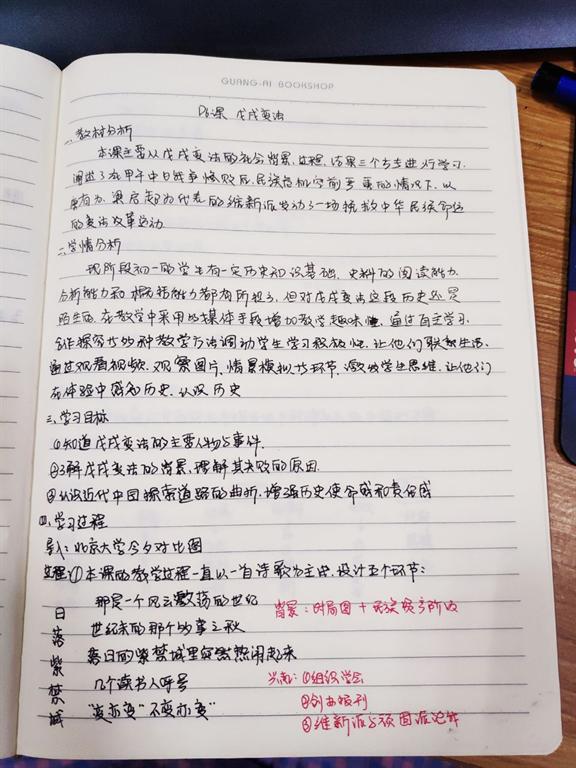 GUANG-AI BOOKSHOP
D6课 戊戌变法
一、教材分析
本课主要从戊戌变法的社会背景、过程、结果三个方面进行学习.
阐述了在甲午中日战争惨败后,民族危机空前严重的情况下,以
康有为、梁启超为代表的维新派发动了一场挽救中华民族命运
的变法改革运动.
二、学情分析
现阶段初一的学生有一定历史知识基础,史料的阅读能力、
分析能力和概括能力都有所提高,但对戊戌变法这段历史还是
陌生的.在教学中采用多媒体手段增加教学趣味性,通过自主学习、
合作探究多种教学方法调动学生学习积极性.让他们联系生活、
通过观看视频、观察图片、情景模拟等环节,激发学生思维,让他们
在体验中感知历史、认识历史
三、学习目标
①知道戊戌变法的主要人物与事件.
②了解戊戌变法的背景、理解其失败的原因.
③认识近代中国探索道路的曲折,增强历史使命感和责任感
四、学习过程
导入:北京大学今夕对比图
过程:①本课的教学过程一直以一首诗歌为主线,设计五个环节:
日落紫禁城
那是一个风云激荡的世纪
背景:时局图+民族资产阶级
世纪末的那个多事之秋
落日的紫禁城里突然热闹起来
几个读书人呼号
兴起:①组织学会
②创办报刊
"变亦变"不变亦变"
③维新派与顽固派论战